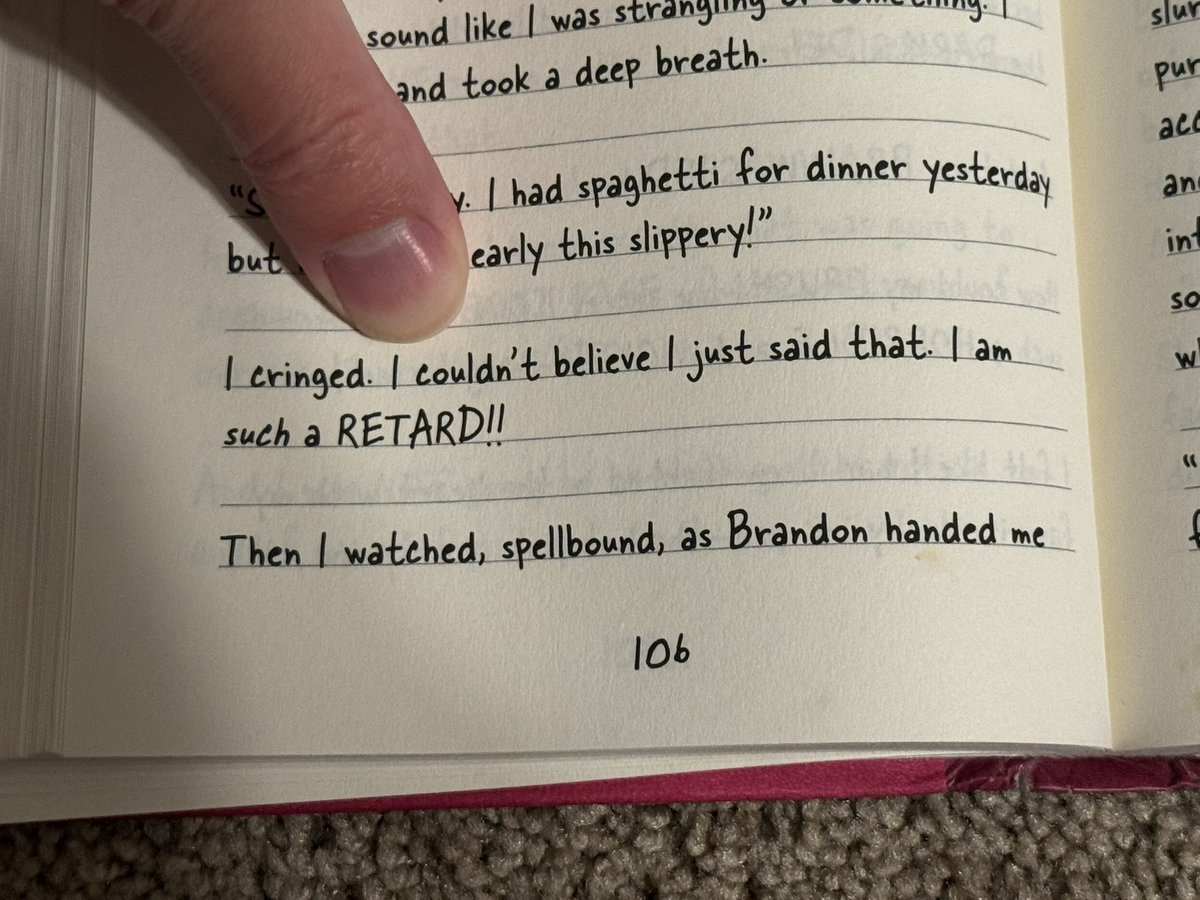 sound like I was strangling or something. I
and took a deep breath.
I had spaghetti for dinner yesterday
but early this slippery!”
I cringed. I couldn't believe I just said that. I am
such a RETARD!!
Then I watched, spellbound, as Brandon handed me
106